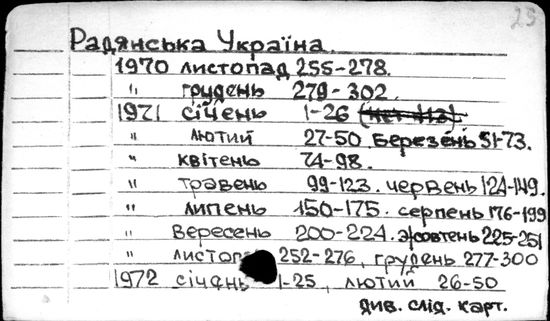 29
Радянська Україна.
1970 листопад 255-278.
" грудень 279-302.
1971 січень 1-26
" лютий 27-50 березень 51-73.
" квітень 74-98.
" травень 99-123. червень 124-149.
" липень 150-175. серпень 176-199
" вересень 200-224. жовтень 225-251
" листопа 252-276, грудень 277-300
1972 січень 1-25, лютий 26-50
див. слід. карт.